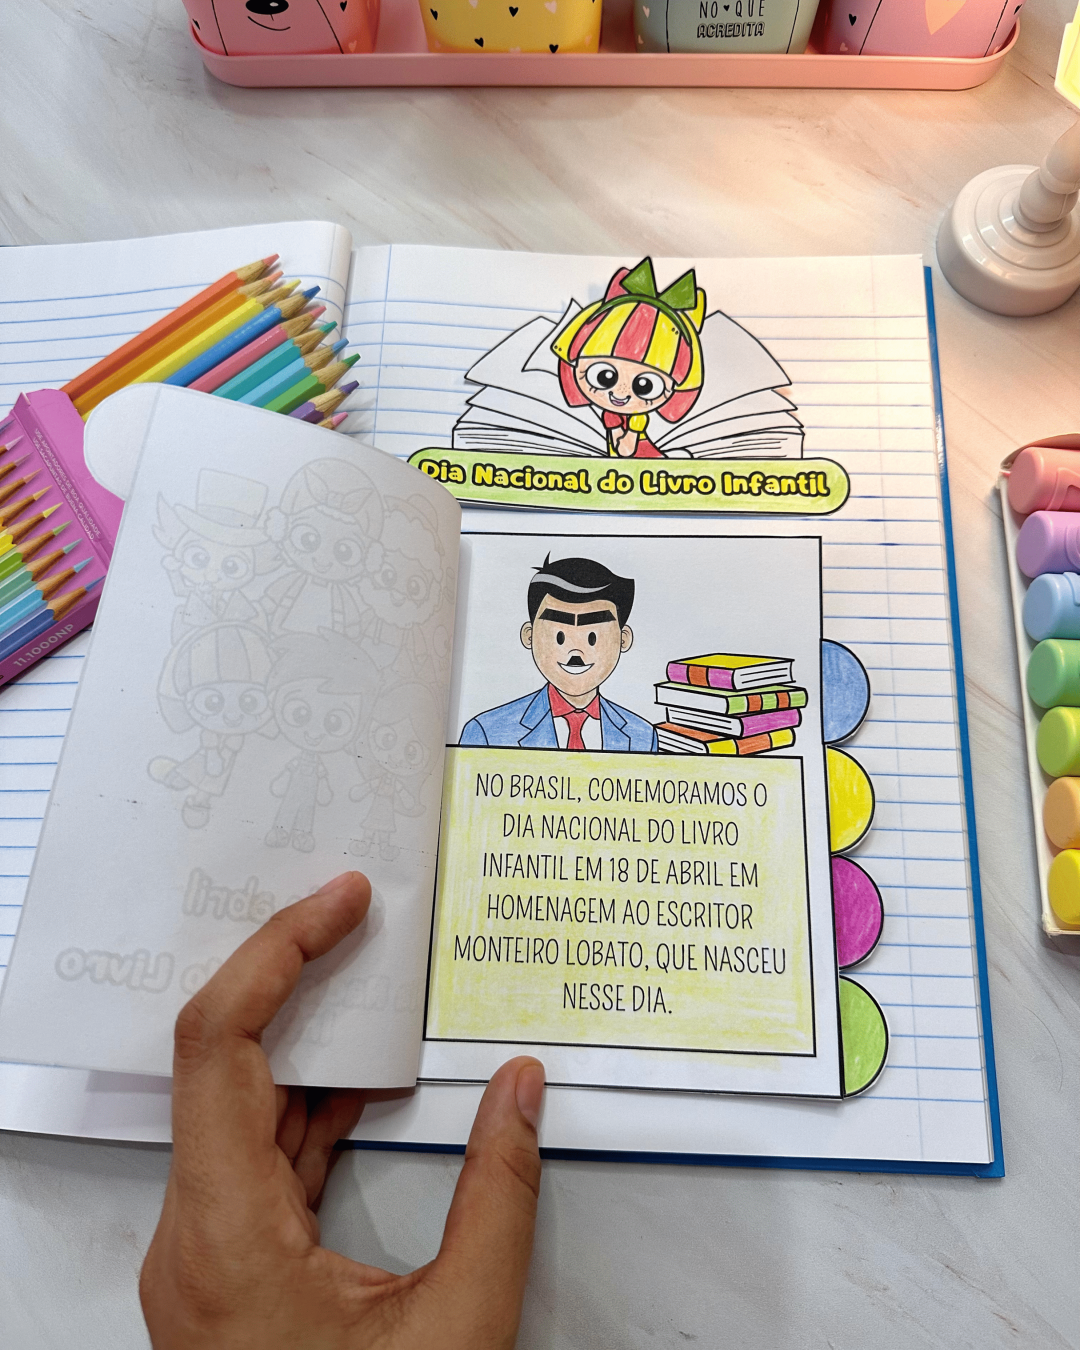 NO♥QUE
ACREDITA
Dia Nacional do Livro Infantil
NO BRASIL, COMEMORAMOS O
DIA NACIONAL DO LIVRO
INFANTIL EM 18 DE ABRIL EM
HOMENAGEM AO ESCRITOR
MONTEIRO LOBATO, QUE NASCEU
NESSE DIA.
11.1000NP